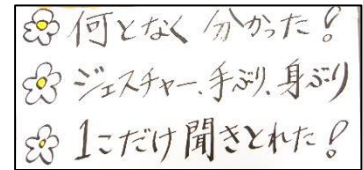 何となく分かった!
ジェスチャー、手ぶり、身ぶり
1こだけ聞きとれた!